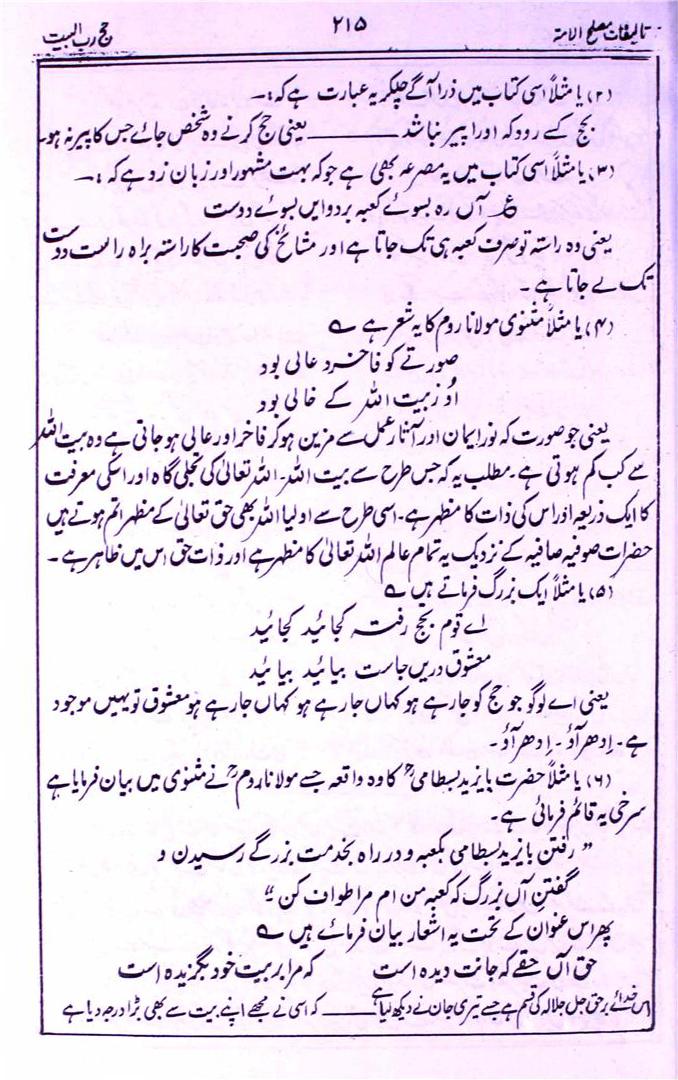 تالیفات مصلح الامۃ ۲۱۵ حج رب البیت
(۲) یا مثلاً اسی کتاب میں ذرا آگے چلکر یہ عبارت ہے کہ:۔
بحج کسے رود کہ اورا پیر نباشد ــــــــ یعنی حج کرنے وہ شخص جائے جس کا پیر نہ ہو۔
(۳) یا مثلاً اسی کتاب میں یہ مصرعہ بھی ہے جو کہ بہت مشہور اور زبان زد ہے کہ :۔
ع آں رہ بسوئے کعبہ برد وایں بسوئے دوست
یعنی وہ راستہ تو صرف کعبہ ہی تک جاتا ہے اور مشائخؒ کی صحبت کا راستہ براہ راست دوست
تک لے جاتا ہے۔
(۴) یا مثلاً مثنوی مولانا روم کا یہ شعر ہے ؎
صورتے کو فاخر د عالی بود
اُو ز بیت اللہ کے خالی بود
یعنی جو صورت کہ نور ایمان اور آثار عمل سے مزین ہو کر فاخر اور عالی ہو جاتی ہے وہ بیت اللہ
سے کب کم ہوتی ہے۔ مطلب یہ کہ جس طرح سے بیت اللہ۔ اللہ تعالیٰ کی تجلی گاہ اور اسکی معرفت
کا ایک ذریعہ اور اس کی ذات کا مظہر ہے۔ اسی طرح سے اولیا اللہ بھی حق تعالیٰ کے مظہر اتم ہوتے ہیں
حضرات صوفیہ صافیہ کے نزدیک یہ تمام عالم اللہ تعالیٰ کا مظہر ہے اور ذات حق اس میں ظاہر ہے۔
(۵) یا مثلاً ایک بزرگ فرماتے ہیں ؎
اے قوم بحج رفتہ کجائید کجائید
معشوق دریں جاست بیائید بیائید
یعنی اے لوگو جو حج کو جا رہے ہو کہاں جا رہے ہو کہاں جا رہے ہو معشوق تو یہیں موجود
ہے۔ ادھر آؤ۔ ادھر آؤ۔
(۶) یا مثلاً حضرت بایزید بسطامیؒ کا وہ واقعہ جسے مولانا رومؒ نے مثنوی میں بیان فرمایا ہے
سرخی یہ قائم فرمائی ہے۔
" رفتن بایزید بسطامی بکعبہ و در راہ بخدمت بزرگے رسیدن و
گفتن آں بزرگ کہ کعبہ من ام مرا طواف کن "
پھر اس عنوان کے تحت یہ اشعار بیان فرمائے ہیں ؎
حق آں حقے کہ جانت دیدہ است کہ مرا بر بیت خود بگزیدہ است
اس خدائے برحق جل جلالہ کی قسم ہے جسے تیری جان نے دیکھ لیا ہے ــــــــ کہ اسی نے مجھے اپنے بیت سے بھی بڑا درجہ دیا ہے